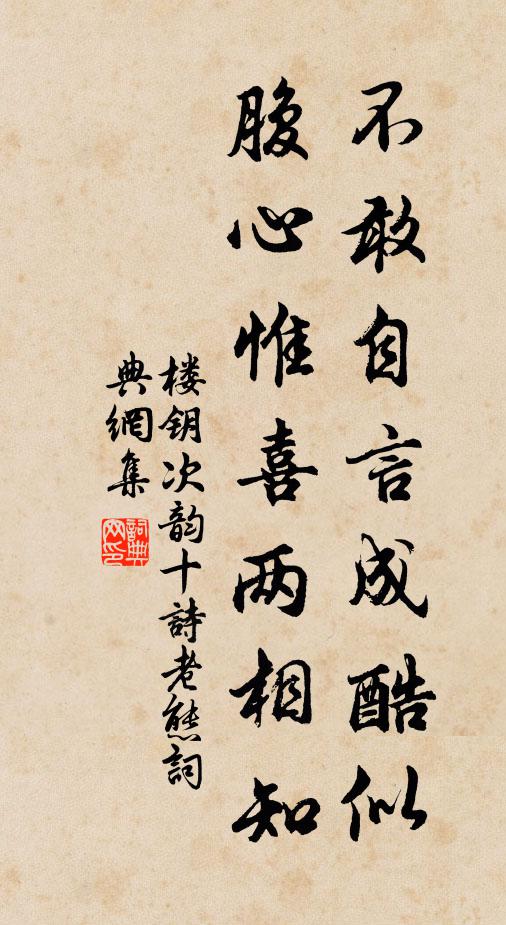 不敢自言成酷似
腹心惟喜两相知
楼钥次韵十詩老態詞
典網集
詞典网印